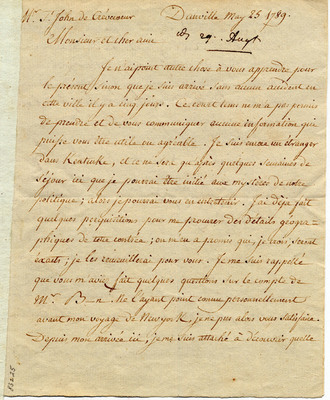 Mr. St. John de Crèvecoeur Danville May 25 1789.
Monsieur et cher ami
29. Augt.
Je n'ai point autre chose à vous apprendre pour
le present, sinon que je suis arrivé sans aucun accident en
cette ville il y a cinq jours. Ce court tems ne m'a pas permis
de prendre et de vous communiquer aucune information qui
puisse vous être utile ou agréable. Je suis encore un étranger
dans Kentucke, et ce ne sera qu'après quelques semaines de
séjour ici que je pourrai être initié aux mysteres de notre
politique; alors je pourrai vous en entretenir. J'ai déja fait
quelques perquisitions pour me procurer des détails géogra-
phiques de cette contrée; on m'en a promis qui, je crois, seront
exacts; je les recueillerai pour vous. Je me suis rappellé
que vous m'avez fait quelques questions sur le compte de
Mr. B—n. Ne l'ayant point connu personnellement
avant mon voyage de New york, je ne pus alors vous satisfaire.
Depuis mon arrivée ici, je me suis attaché à découvrir quelle